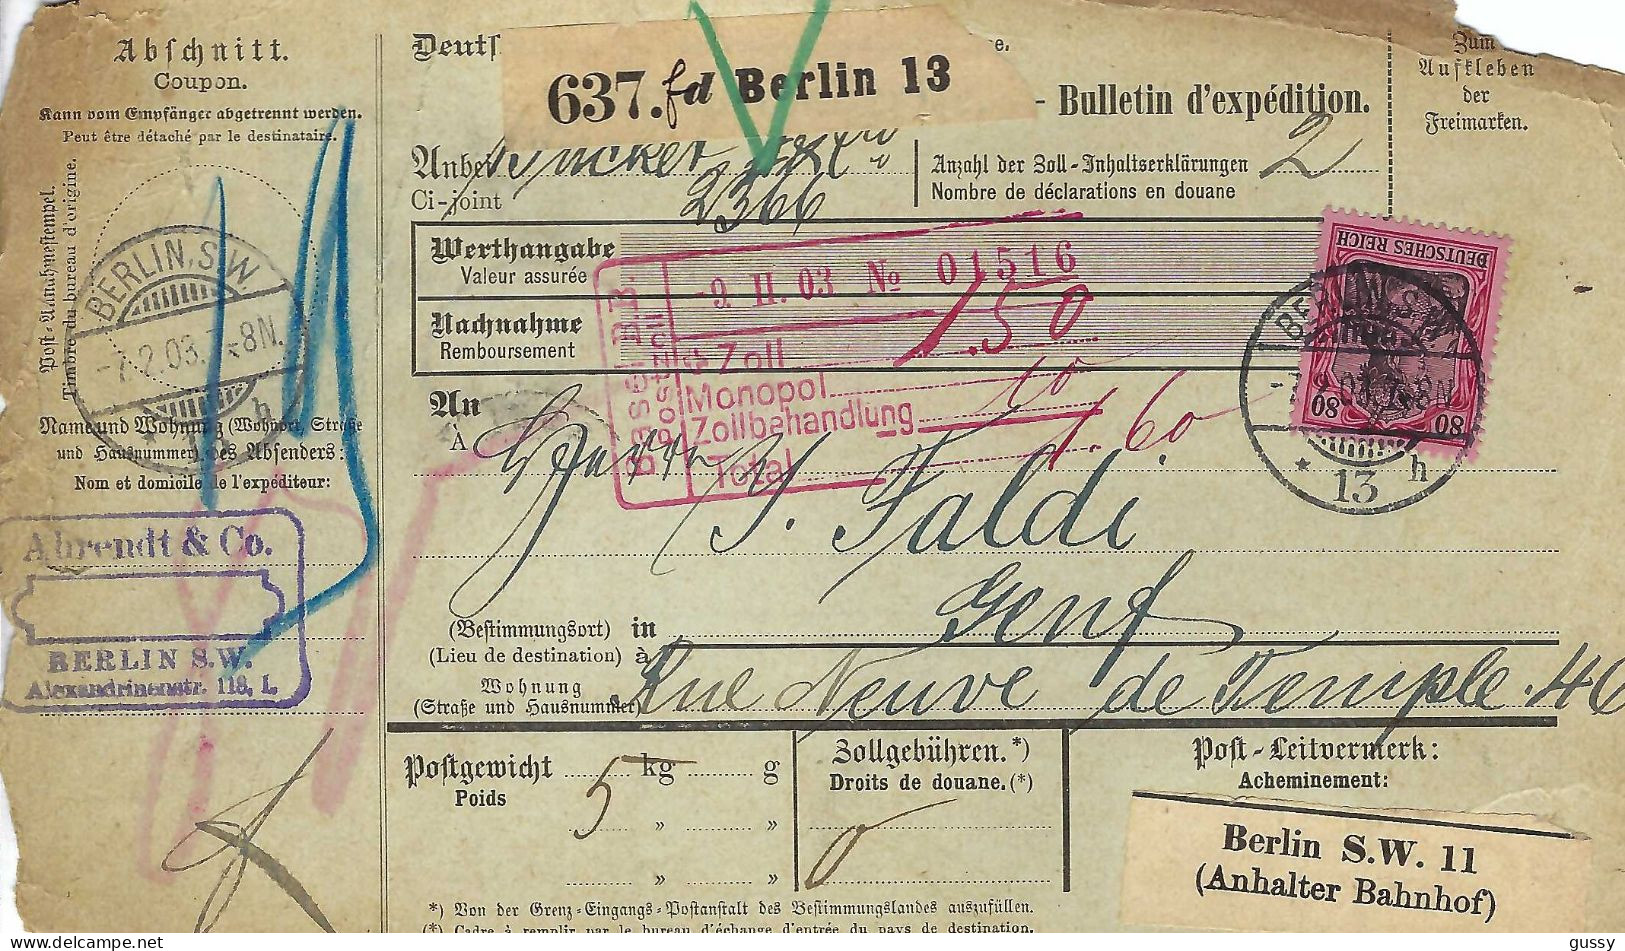 Abschnitt.
Coupon.
Kann vom Empfänger abgetrennt werden.
Peut être détaché par le destinataire.
Post-Aufnahmestempel.
Timbre du bureau d'origine.
BERLIN, S.W.
-7.2.03.7-8N.
h
Name und Wohnung (Wohnort, Straße
und Hausnummer) des Absenders:
Nom et domicile de l'expéditeur:
Ahrendt & Co.
BERLIN S.W.
Alexandrinenstr. 118, I.
Deutſ
e.
637. fd Berlin 13
- Bulletin d'expédition.
Zum
Aufkleben
der
Freimarken.
Anbei
Ci-joint
2366
Anzahl der Zoll-Inhaltserklärungen 2
Nombre de déclarations en douane
Werthangabe
Valeur assurée
Nachnahme
Remboursement
-9. II. 03 No 01516
1.50
Zoll
Monopol
Zollbehandlung 10
Total 1.60
DEUTSCHES REICH
80 80
BERLIN, S.W.
* 13 h
An Herrn J. Faldi
À
(Bestimmungsort) in Genf
(Lieu de destination) à
Wohnung Rue Neuve de Temple. 46
(Straße und Hausnummer)
Postgewicht 5 kg g
Poids
" "
" "
Zollgebühren.*)
Droits de douane.(*)
Post-Leitvermerk:
Acheminement:
Berlin S.W. 11
(Anhalter Bahnhof)
*) Von der Grenz-Eingangs-Postanstalt des Bestimmungslandes auszufüllen.
(*) Cadre à remplir par le bureau d'échange d'entrée du pays de destination.
delcampe.net
gussy